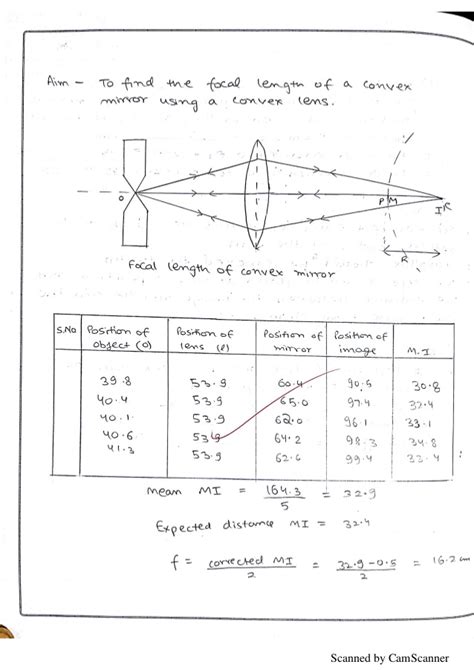 Aim - To find the focal length of a convex
mirror using a convex lens.
O
P M
I R
R
Focal length of convex mirror
S.No Position of object (O) Position of lens (l) Position of mirror Position of image M.I.
39.8 53.9 60.4 90.5 30.8
40.4 53.9 65.0 97.4 32.4
40.1 53.9 62.0 96.1 33.1
40.6 53.9 64.2 98.3 34.8
41.3 53.9 62.6 99.4 33.4
mean MI = 164.3 / 5 = 32.9
Expected distance MI = 32.4
f = corrected MI / 2 = 32.9 - 0.5 / 2 = 16.2 cm
Scanned by CamScanner